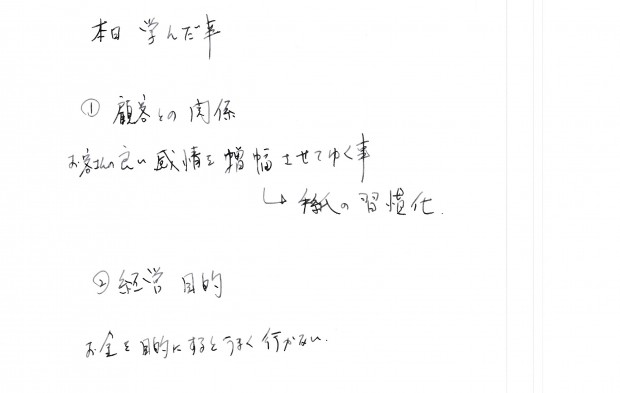 本日 学んだ事
① 顧客との関係
お客さんの良い感情を増幅させてゆく事
↳ 手紙の習慣化.
② 経営 目的
お金を目的にするとうまく行かない.